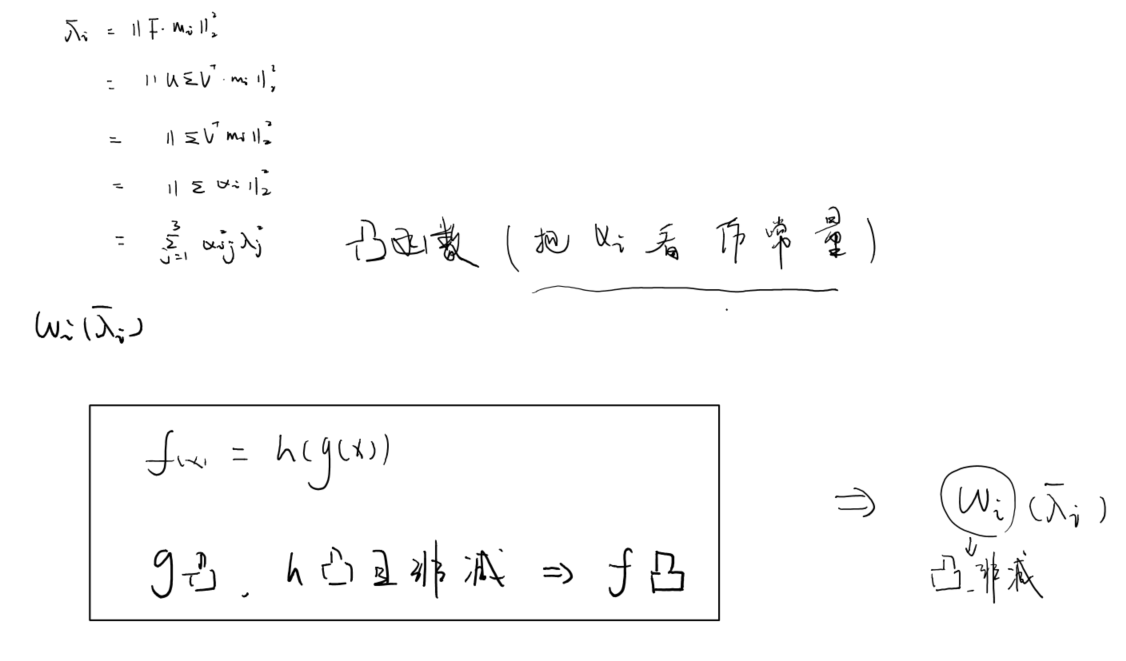 λ̄ᵢ = ‖F·mᵢ‖₂²
= ‖UΣVᵀ·mᵢ‖₂²
= ‖ΣVᵀmᵢ‖₂²
= ‖Σαᵢ‖₂²
= Σ_{j=1}^{3} αᵢⱼ²λⱼ² 凸函数（把αᵢ看作常量）
Wᵢ(λ̄ᵢ)
f(x) = h(g(x))
⇒ Wᵢ(λ̄ᵢ)
g凸. h凸且非减 ⇒ f凸
↓
凸.非减